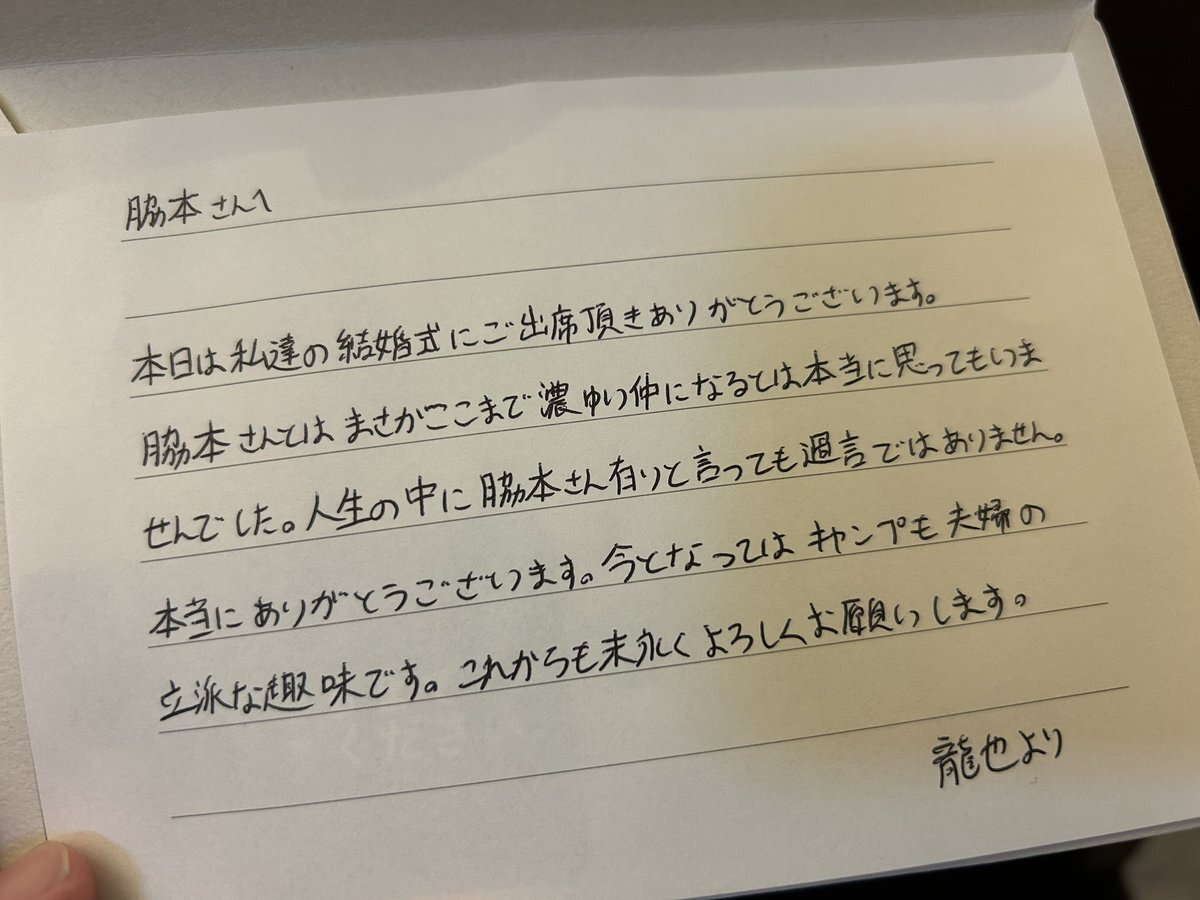 脇本さんへ
本日は私達の結婚式にご出席頂きありがとうございます。
脇本さんとはまさかここまで濃ゆい仲になるとは本当に思ってもいま
せんでした。人生の中に脇本さん有りと言っても過言ではありません。
本当にありがとうございます。今となってはキャンプも夫婦の
立派な趣味です。これからも末永くよろしくお願いします。
龍也より